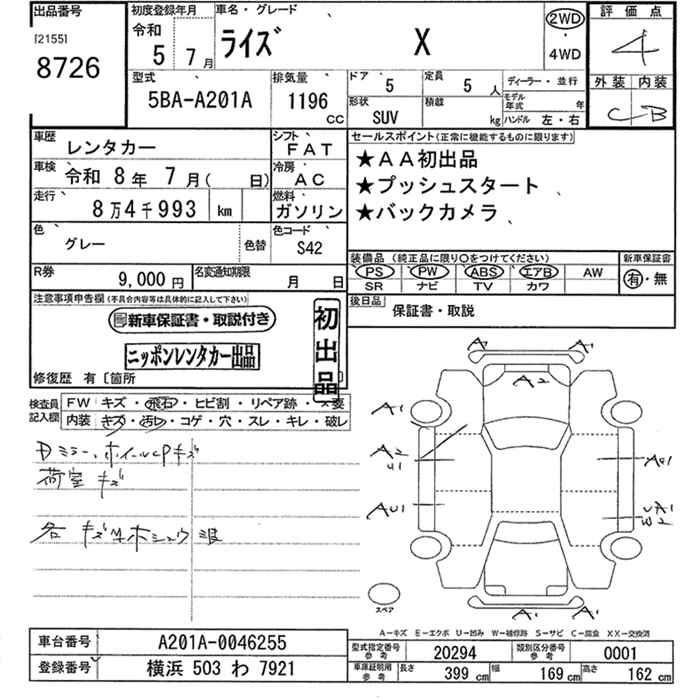 出品番号 初度登録年月 車名・グレード 評価点
[2155]
8726
令和 5年 7月 ライズ X 2WD・4WD 4
型式 排気量 ドア 5 定員 5人 ディーラー・並行 外装 内装
5BA-A201A 1196cc 形状 SUV 積載 kg モデル年式 年 ハンドル 左・右 C B
車歴 レンタカー シフト FAT セールスポイント(正常に機能するものに限ります)
車検 令和 8年 7月( 日) 冷房 AC ★AA初出品
走行 8万4千993 km 燃料 ガソリン ★プッシュスタート
★バックカメラ
色 グレー 色替 色コード S42
装備品(純正品に限り○をつけてください) 新車保証書
PS PW ABS エアB AW 有・無
SR ナビ TV カワ
R券 9,000円 名変通知期限 月 日
後日品 保証書・取説
注意事項申告欄(不具合内容等は具体的に記入して下さい)
新車保証書・取説付き
ニッポンレンタカー出品
初出品
修復歴 有〔箇所
検査員記入欄 FW キズ・飛石・ヒビ割・リペア跡・
内装 キズ・汚レ・コゲ・穴・スレ・キレ・破レ
Dミラー、ホイールCPキズ
荷室 キズ
各 キズ
A A
A2
A1
A2
U1
AU1
A A
スペア
A-キズ E-エクボ U-凹み W-補修跡 S-サビ C-腐食 XX-交換済
車台番号 A201A-0046255
登録番号 横浜 503 わ 7921
型式指定番号 参考 20294 類別区分番号 参考 0001
車庫証明用 参考 長さ 399cm 幅 169cm 高さ 162cm